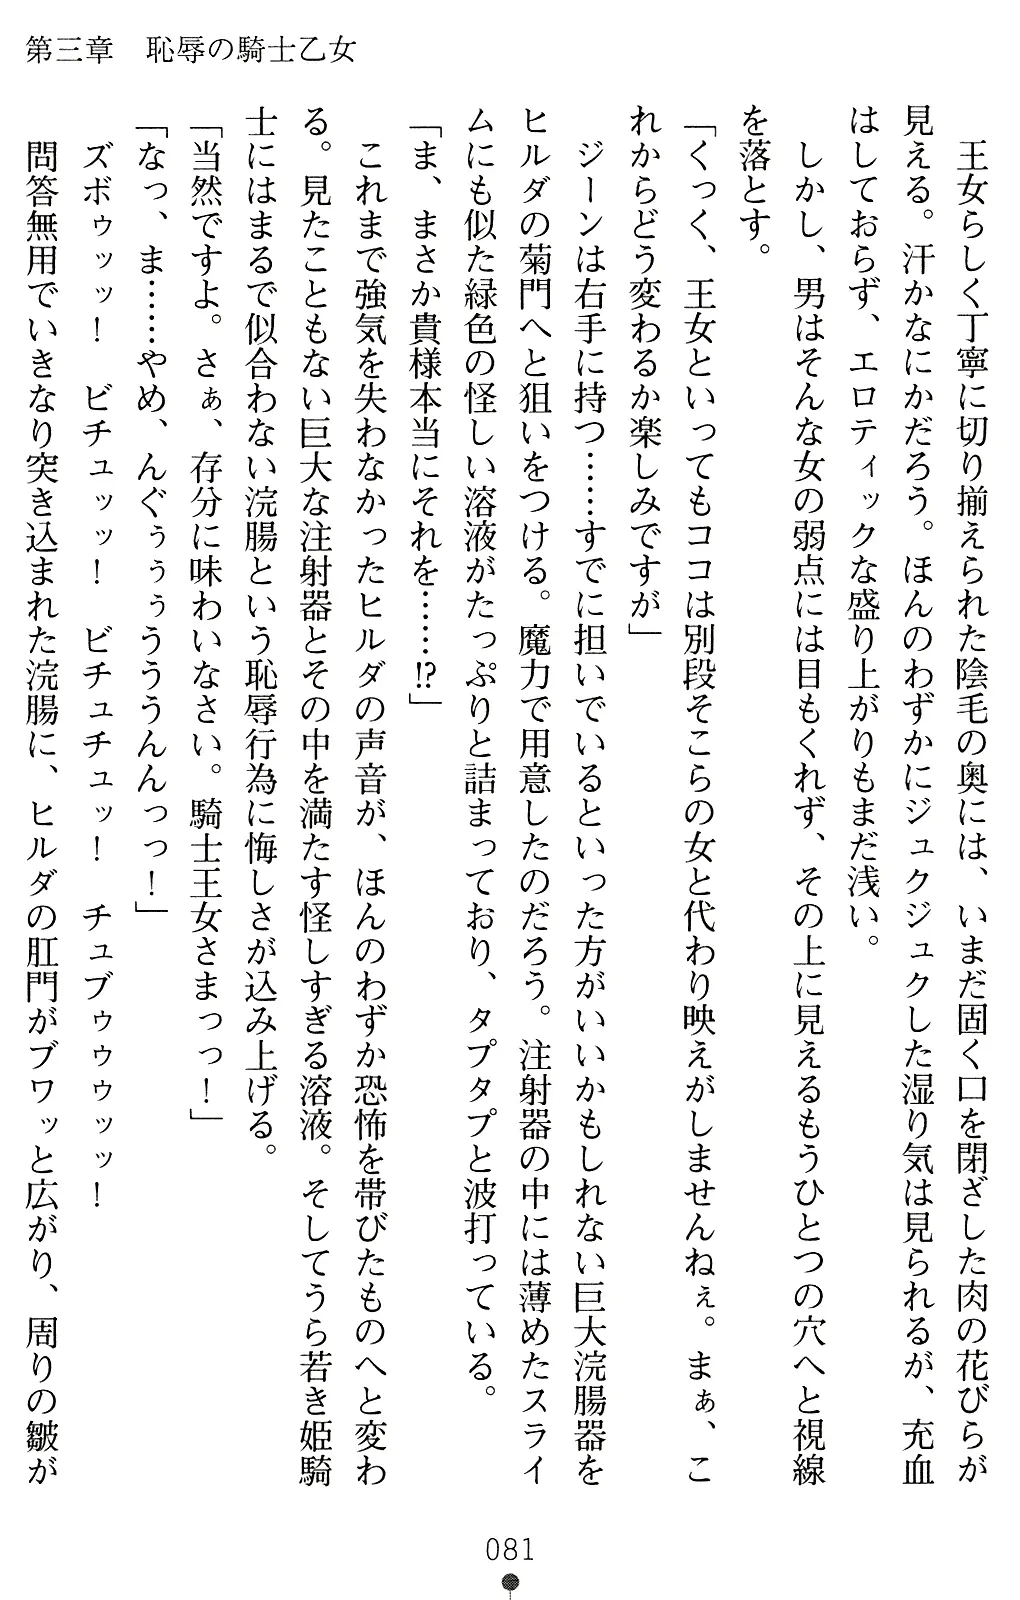 第三章　恥辱の騎士乙女
王女らしく丁寧に切り揃えられた陰毛の奥には、いまだ固く口を閉ざした肉の花びらが
見える。汗かなにかだろう。ほんのわずかにジュクジュクした湿り気は見られるが、充血
はしておらず、エロティックな盛り上がりもまだ浅い。
しかし、男はそんな女の弱点には目もくれず、その上に見えるもうひとつの穴へと視線
を落とす。
「くっく、王女といってもココは別段そこらの女と代わり映えがしませんねぇ。まぁ、こ
れからどう変わるか楽しみですが」
ジーンは右手に持つ……すでに担いでいるといった方がいいかもしれない巨大浣腸器を
ヒルダの菊門へと狙いをつける。魔力で用意したのだろう。注射器の中には薄めたスライ
ムにも似た緑色の怪しい溶液がたっぷりと詰まっており、タプタプと波打っている。
「ま、まさか貴様本当にそれを……!?」
これまで強気を失わなかったヒルダの声音が、ほんのわずか恐怖を帯びたものへと変わ
る。見たこともない巨大な注射器とその中を満たす怪しすぎる溶液。そしてうら若き姫騎
士にはまるで似合わない浣腸という恥辱行為に悔しさが込み上げる。
「当然ですよ。さぁ、存分に味わいなさい。騎士王女さまっっ！」
「なっ、ま……やめ、んぐぅぅぅうううんんっっ！」
ズボゥッッ！　ビチュッッ！　ビチュチュッ！　チュブゥゥゥッッ！
問答無用でいきなり突き込まれた浣腸に、ヒルダの肛門がブワッと広がり、周りの皺が
081